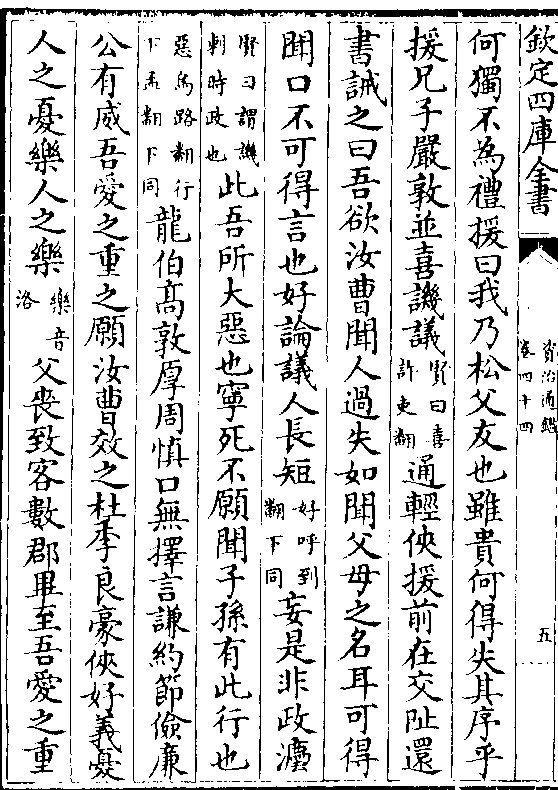 欽定四庫全書
資治通鑑
卷四十四
五
何獨不為禮援曰我乃松父友也雖貴何得失其序乎
援兄子嚴敦並喜譏議賢曰喜許吏翻通輕俠援前在交阯還
書誡之曰吾欲汝曹聞人過失如聞父母之名耳可得
聞口不可得言也好論議人長短好呼到翻下同妄是非政灋
賢曰謂譏刺時政也此吾所大惡也寧死不願聞子孫有此行也
惡烏路翻行下孟翻下同龍伯高敦厚周慎口無擇言謙約節儉廉
公有威吾愛之重之願汝曹效之杜季良豪俠好義憂
人之憂樂人之樂樂音洛父喪致客數郡畢至吾愛之重